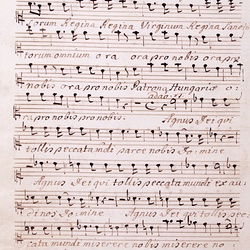 torum Regina Regina Virginum Regina Sancto
torum omnium ora ora pro nobis ora pro
nobis ora pro nobis Patrona Hungariæ o:
ra pro nobis pro nobis. Agnus Dei qui
tollis peccata mundi parce nobis Domine
Agnus Dei qui tollis peccata mundi exau:
di nos Domine Agnus Dei qui tollis pec
cata mundi miserere nobis miserere no